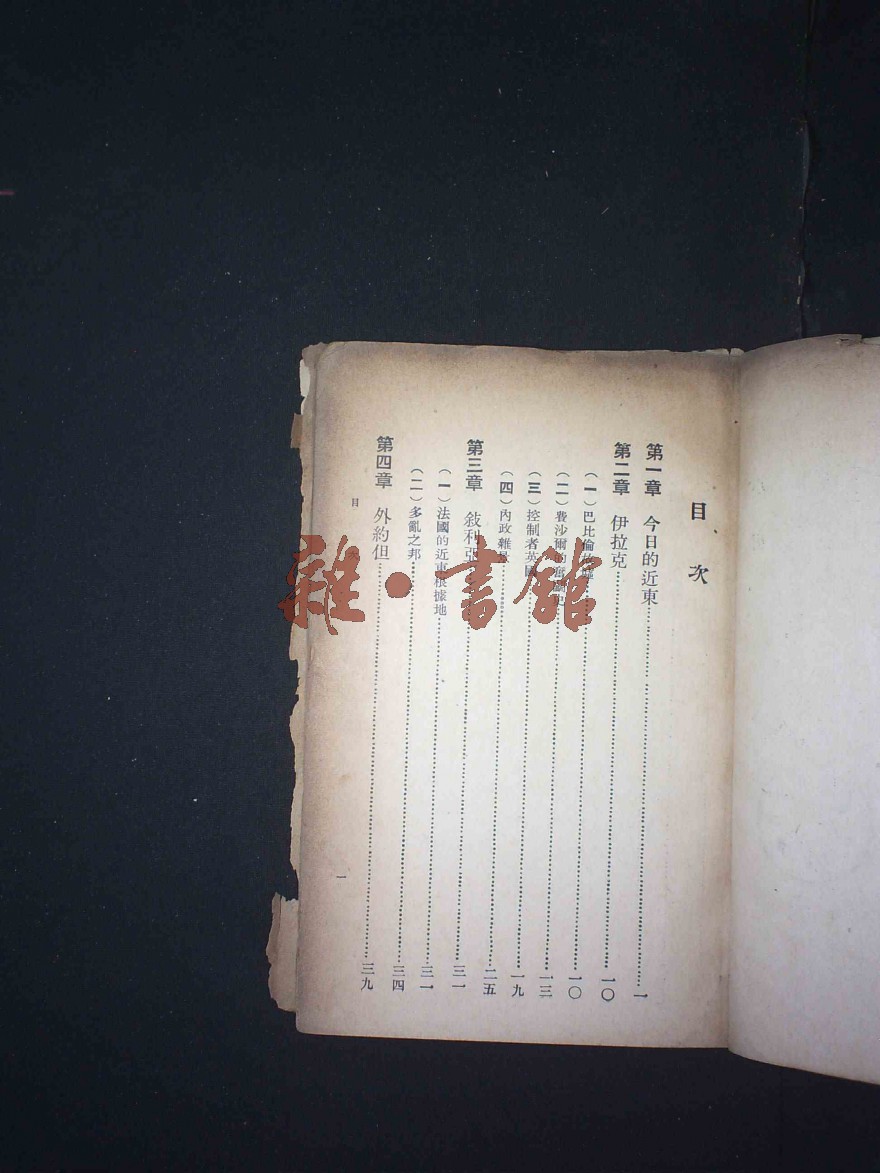 目次
第一章 今日的近東……一
第二章 伊拉克……一〇
(一)巴比倫……一〇
(二)費沙爾的奮鬥史……一三
(三)控制者英國……一九
(四)內政雜景……二五
第三章 敍利亞……三一
(一)法國的近東根據地……三一
(二)多亂之邦……三四
第四章 外約但……三九
目
一
雜·書館